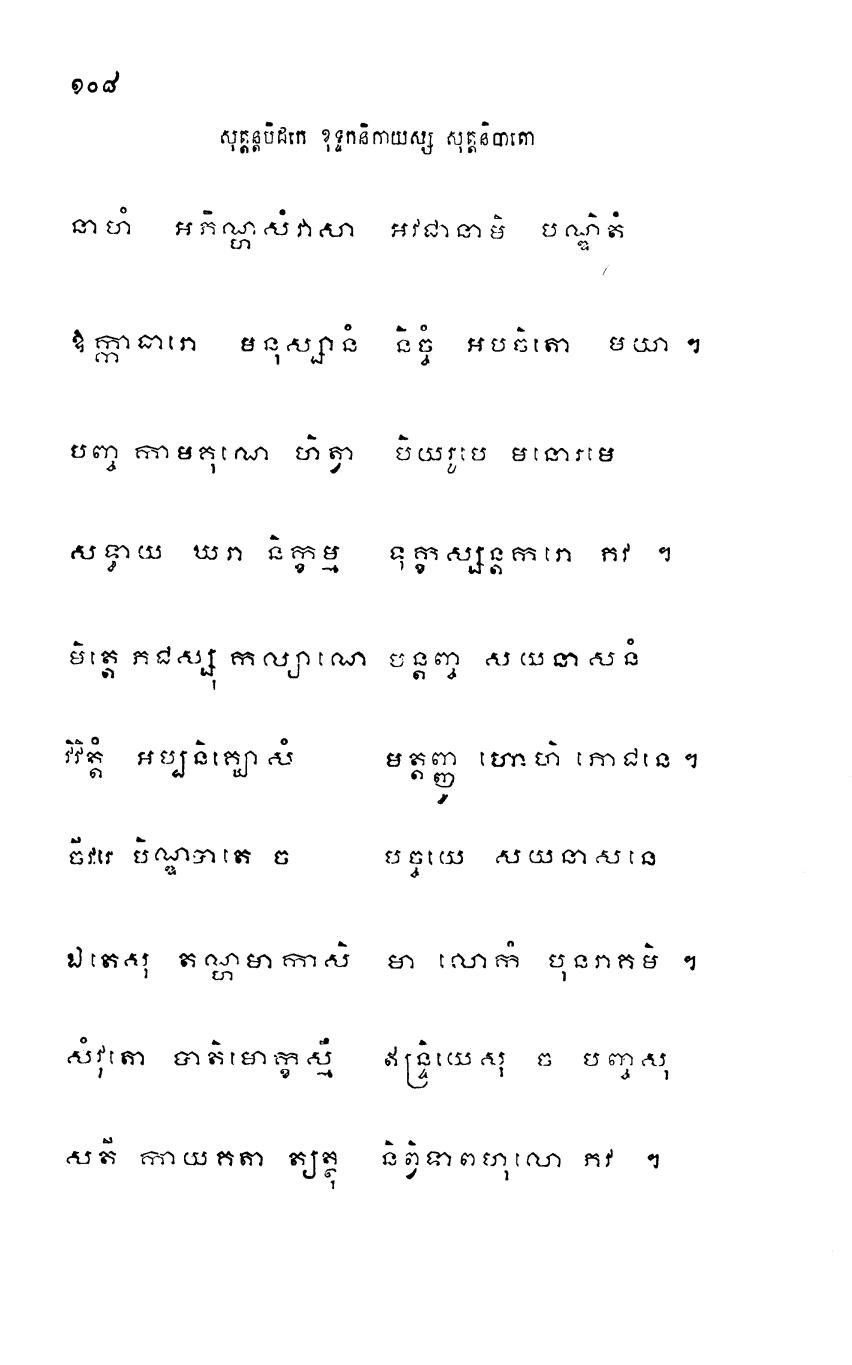 ១០៨
សុត្តន្តបិដកេ ខុទ្ទកនិកាយស្ស សុត្តនិបាតោ
នាហំ អភិណ្ហសំវាសា អវជានាមិ បណ្ឌិតំ
ឱក្កាធារោ មនុស្សានំ និច្ចំ អបចិតោ មយា ។
បញ្ច កាមគុណេ ហិត្វា បិយរូបេ មនោរមេ
សទ្ធាយ ឃរា និក្ខម្ម ទុក្ខស្សន្តករោ ភវ ។
មិត្តេ ភជស្សុ កល្យាណេ បន្តញ្ច សយនាសនំ
វិវិត្តំ អប្បនិគ្ឃោសំ មត្តញ្ញូ ហោហិ ភោជនេ ។
ចីវរេ បិណ្ឌបាតេ ច បច្ចយេ សយនាសនេ
ឯតេសុ តណ្ហមាកាសិ មា លោកំ បុនរាគមិ ។
សំវុតោ បាតិមោក្ខស្មឹ ឥន្ទ្រិយេសុ ច បញ្ចសុ
សតី កាយគតា ត្យត្ថុ និព្វិទាពហុលោ ភវ ។